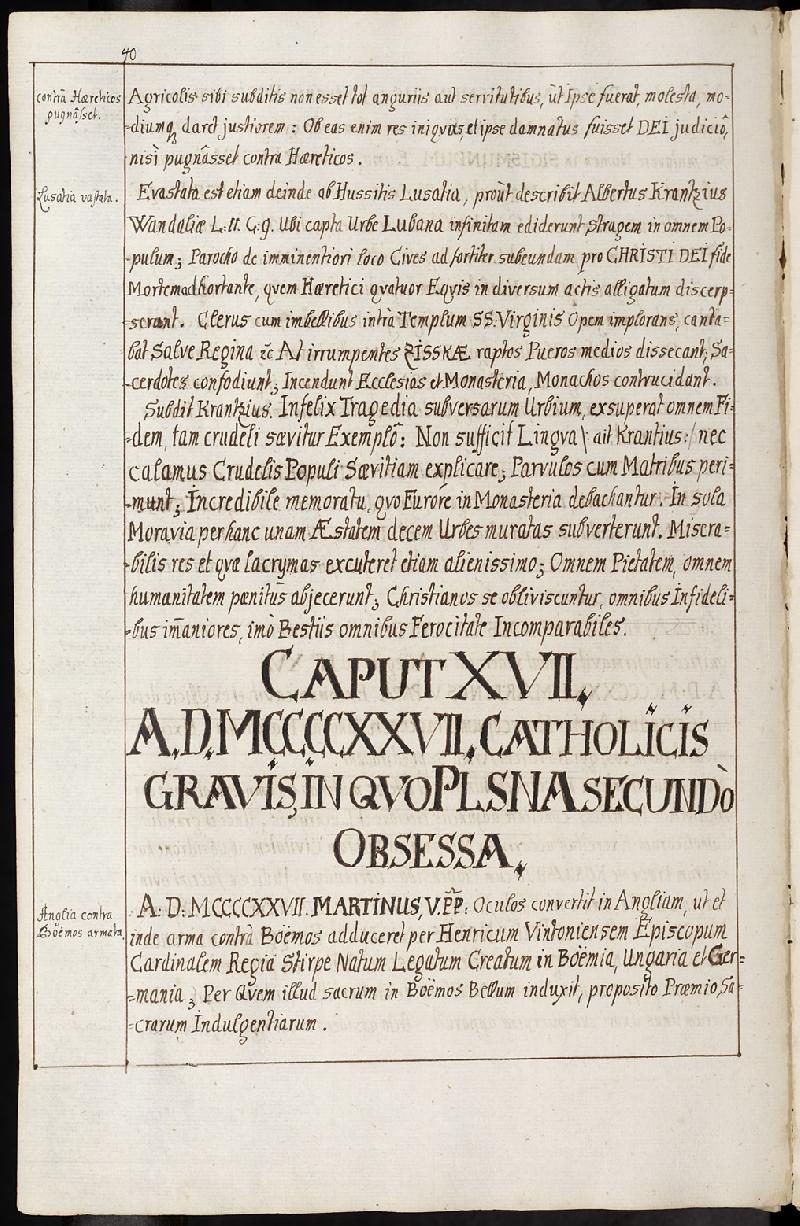 40
contrà Hæreticos
pugnâsset.
Agricolis sibi subditis non esset tot anguriis aut servitutibus, ùt Ipse fuerat, molesta, mo-
-diumq daret justiorem: Ob eas enim res iniqvus et ipse damnatus fuisset DEI judiciô,
nisì pugnâsset contra Hæreticos.
Lusatia vastata.
Evastata est etiam deinde ab Hussitis Lusatia, proùt describit Albertus Krantzius
Wandaliæ L. 11. C. 9. Ubi capta Urbe Lubana infinitam ediderunt stragem in omnem Po-
-pulum; Parocho de imminentiori loco Cives ad fortiter subeundam pro CHRISTI DEI fide
Mortem adhortante, qvem Hæretici qvatuor Eqvis in diversum actis alligatum discerp-
-serunt. Clerus cum imbellibus intra Templum SS. Virginis Opem implorans, canta-
bat Salve Regina &c At irrumpentes ZISSKÆ raptos Pueros medios dissecant, Sa-
-cerdotes confodiunt; Incendunt Ecclesias et Monasteria, Monachos contrucidant.
Subdit Krantzius. Infelix Tragedia subversarum Urbium, exsuperat omnem Fi-
-dem, tam crudeli sævitur Exemplô: Non sufficit Lingva /: ait Krantius :/ nec
calamus Crudelis Populi Sævitiam explicare; Parvulos cum Matribus peri-
-munt; Incredibile memoratu, qvo Furore in Monasteria debachantur. In sola
Moravia per hanc unam Æstatem decem Urbes muratas subverterunt. Misera-
-bilis res et qvæ lacrymas excuteret etiam alienissimo; Omnem Pietatem, omnem
humanitatem pænitus abjecerunt; Christianos se obliviscuntur, omnibus Infideli-
-bus im̄aniores, imò Bestiis omnibus Ferocitate Incomparabiles.
CAPUT XVII.
A. D. MCCCCXXVII. CATHOLICIS
GRAVIS, IN QVO PLSNA SECUNDÒ
OBSESSA.
Anglia contra
Boëmos armata.
A. D. MCCCCXXVII. MARTINUS, V. PP. Oculos convertit in Angliam, ut et
inde arma contrà Boëmos adduceret per Henricum Vintoniensem Episcopum
Cardinalem Regia Stirpe Natum Legatum Creatum in Boëmia, Ungaria et Ger-
-mania; Per Qvem illud sacrum in Boëmos Bellum induxit, proposito Præmio, Sa-
-crarum Indulgentiarum.